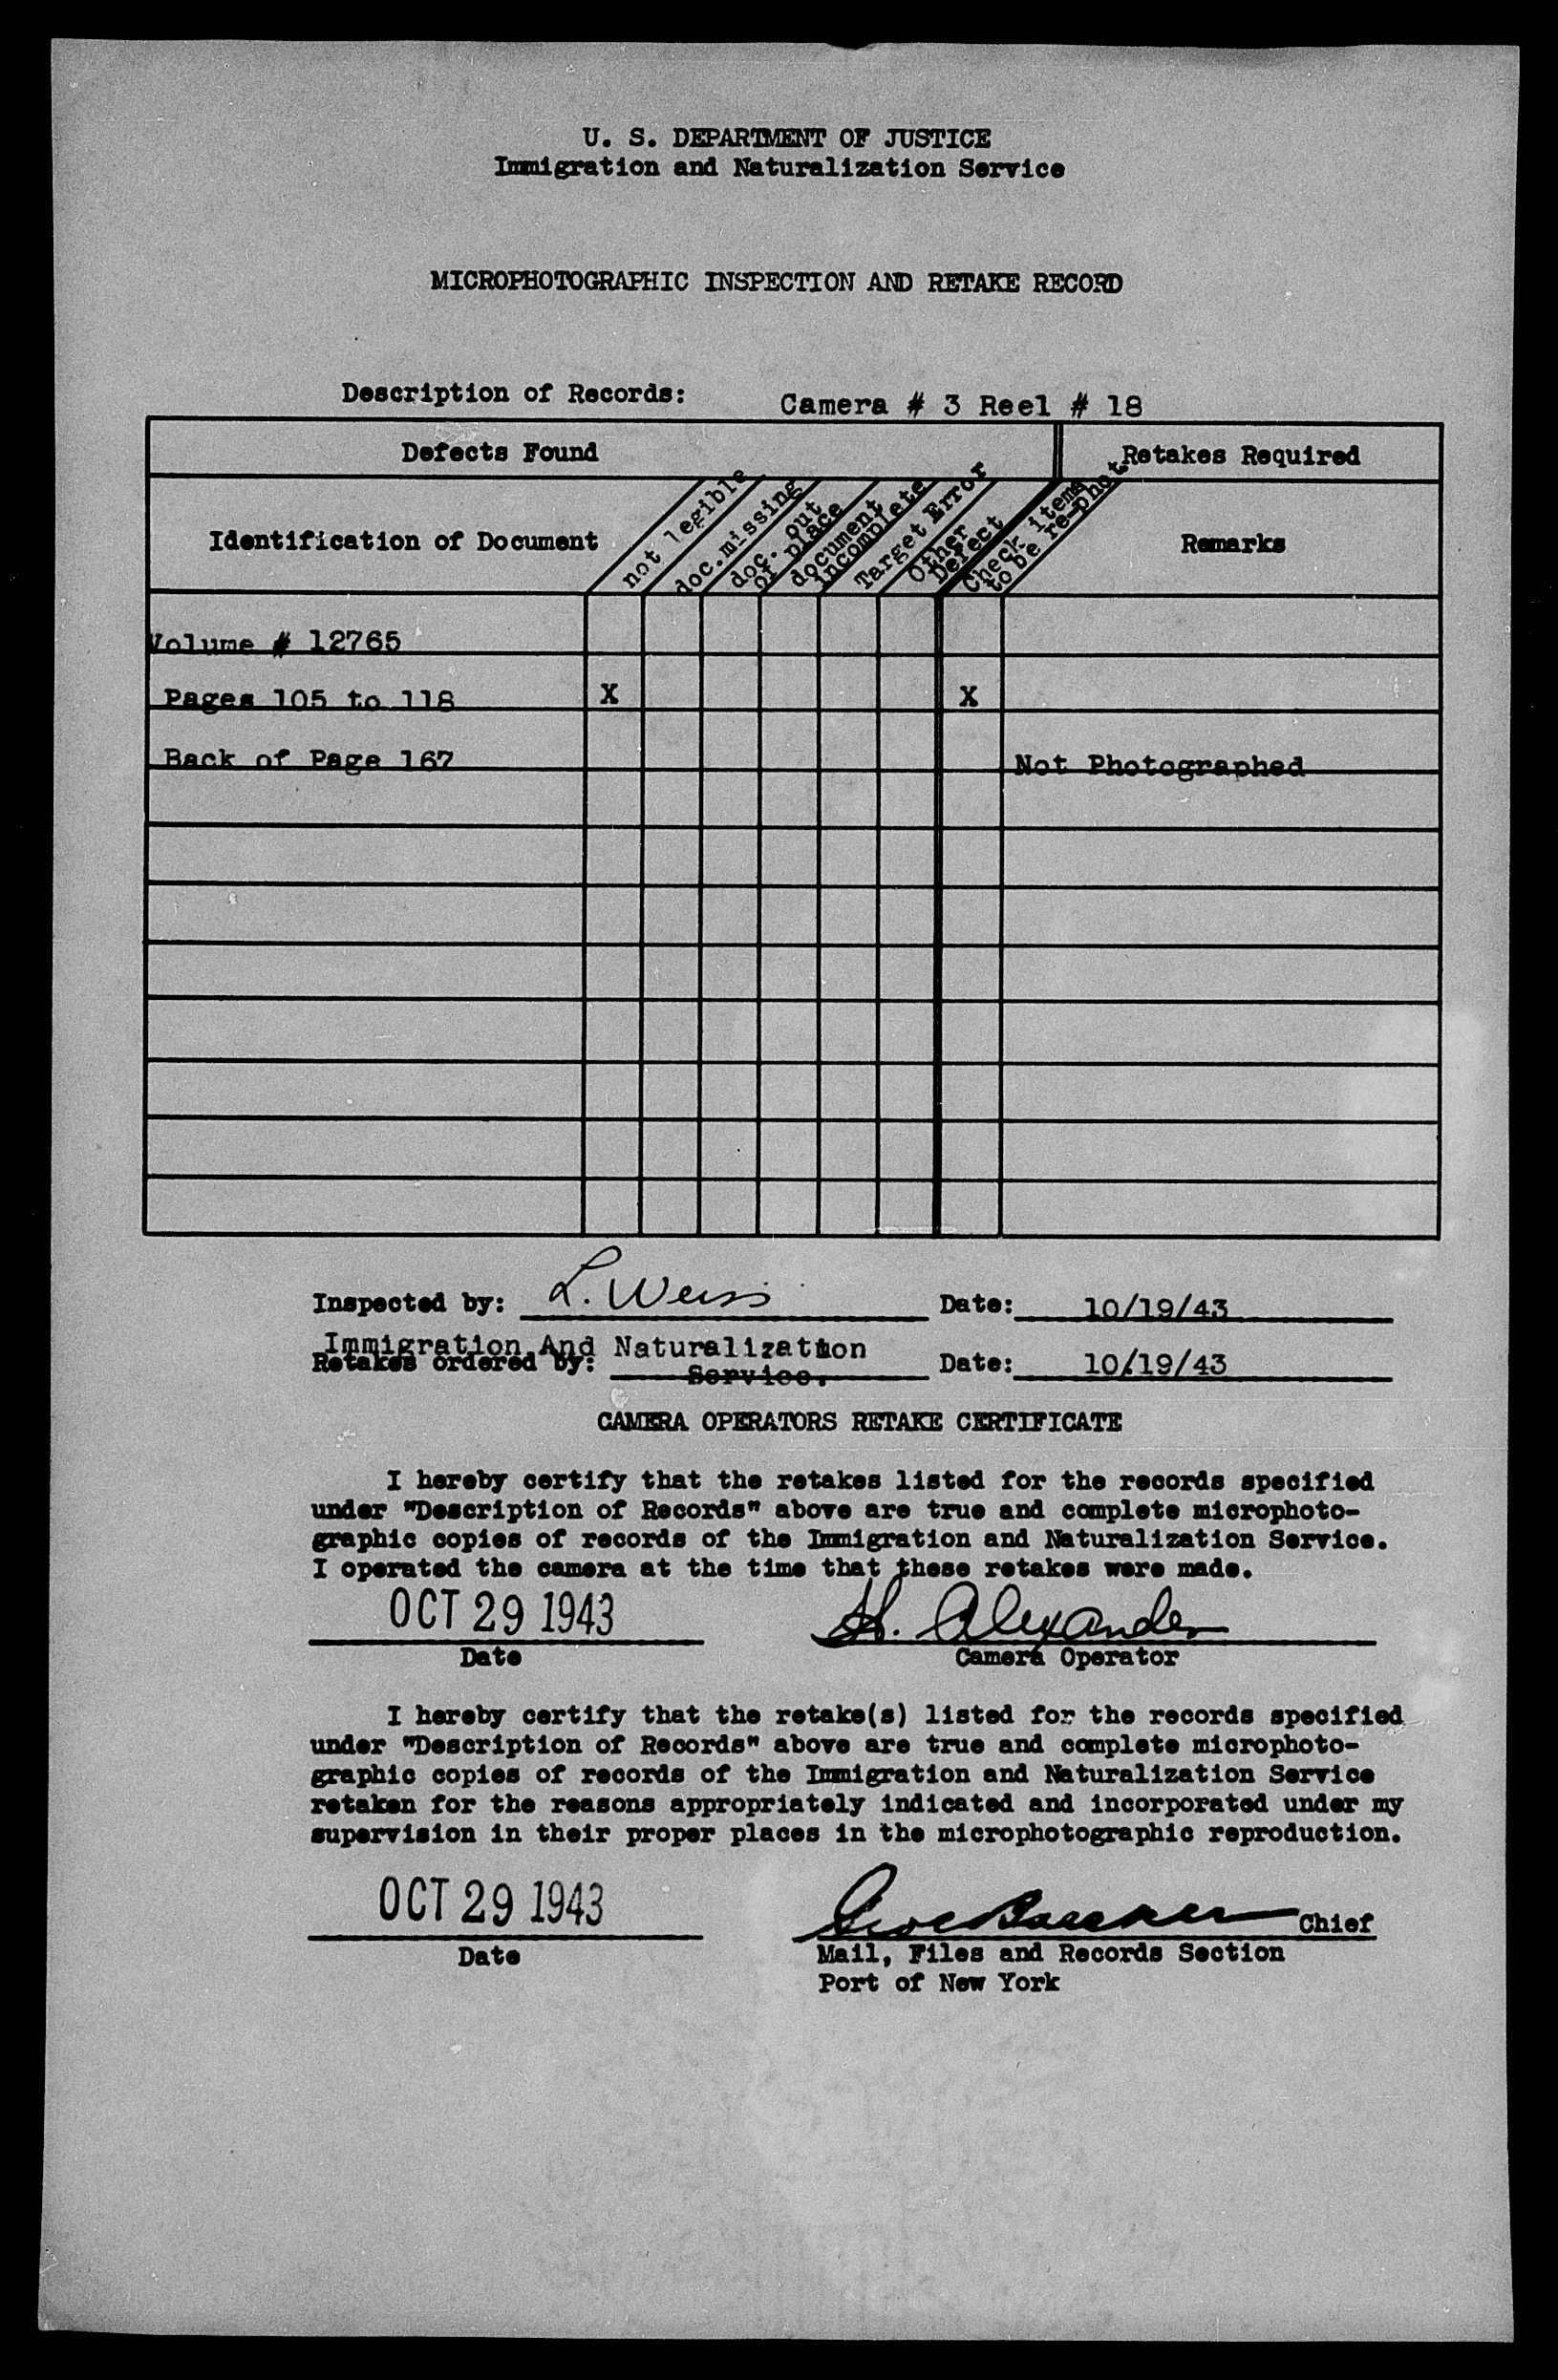 U. S. DEPARTMENT OF JUSTICE
Immigration and Naturalization Service
MICROPHOTOGRAPHIC INSPECTION AND RETAKE RECORD
Description of Records: Camera # 3 Reel # 18
Defects Found Retakes Required
Identification of Document not legible doc.missing doc. out of place document incomplete Target Error Other Defect Check items to be re-phot. Remarks
Volume # 12765
Pages 105 to 118 X X
Back of Page 167 Not Photographed
Inspected by: L. Weiss Date: 10/19/43
Immigration And Naturalization
Retakes ordered by: Service. Date: 10/19/43
CAMERA OPERATORS RETAKE CERTIFICATE
I hereby certify that the retakes listed for the records specified
under "Description of Records" above are true and complete microphoto-
graphic copies of records of the Immigration and Naturalization Service.
I operated the camera at the time that these retakes were made.
OCT 29 1943 H. Alexander
Date Camera Operator
I hereby certify that the retake(s) listed for the records specified
under "Description of Records" above are true and complete microphoto-
graphic copies of records of the Immigration and Naturalization Service
retaken for the reasons appropriately indicated and incorporated under my
supervision in their proper places in the microphotographic reproduction.
OCT 29 1943 Chief
Date Mail, Files and Records Section
Port of New York